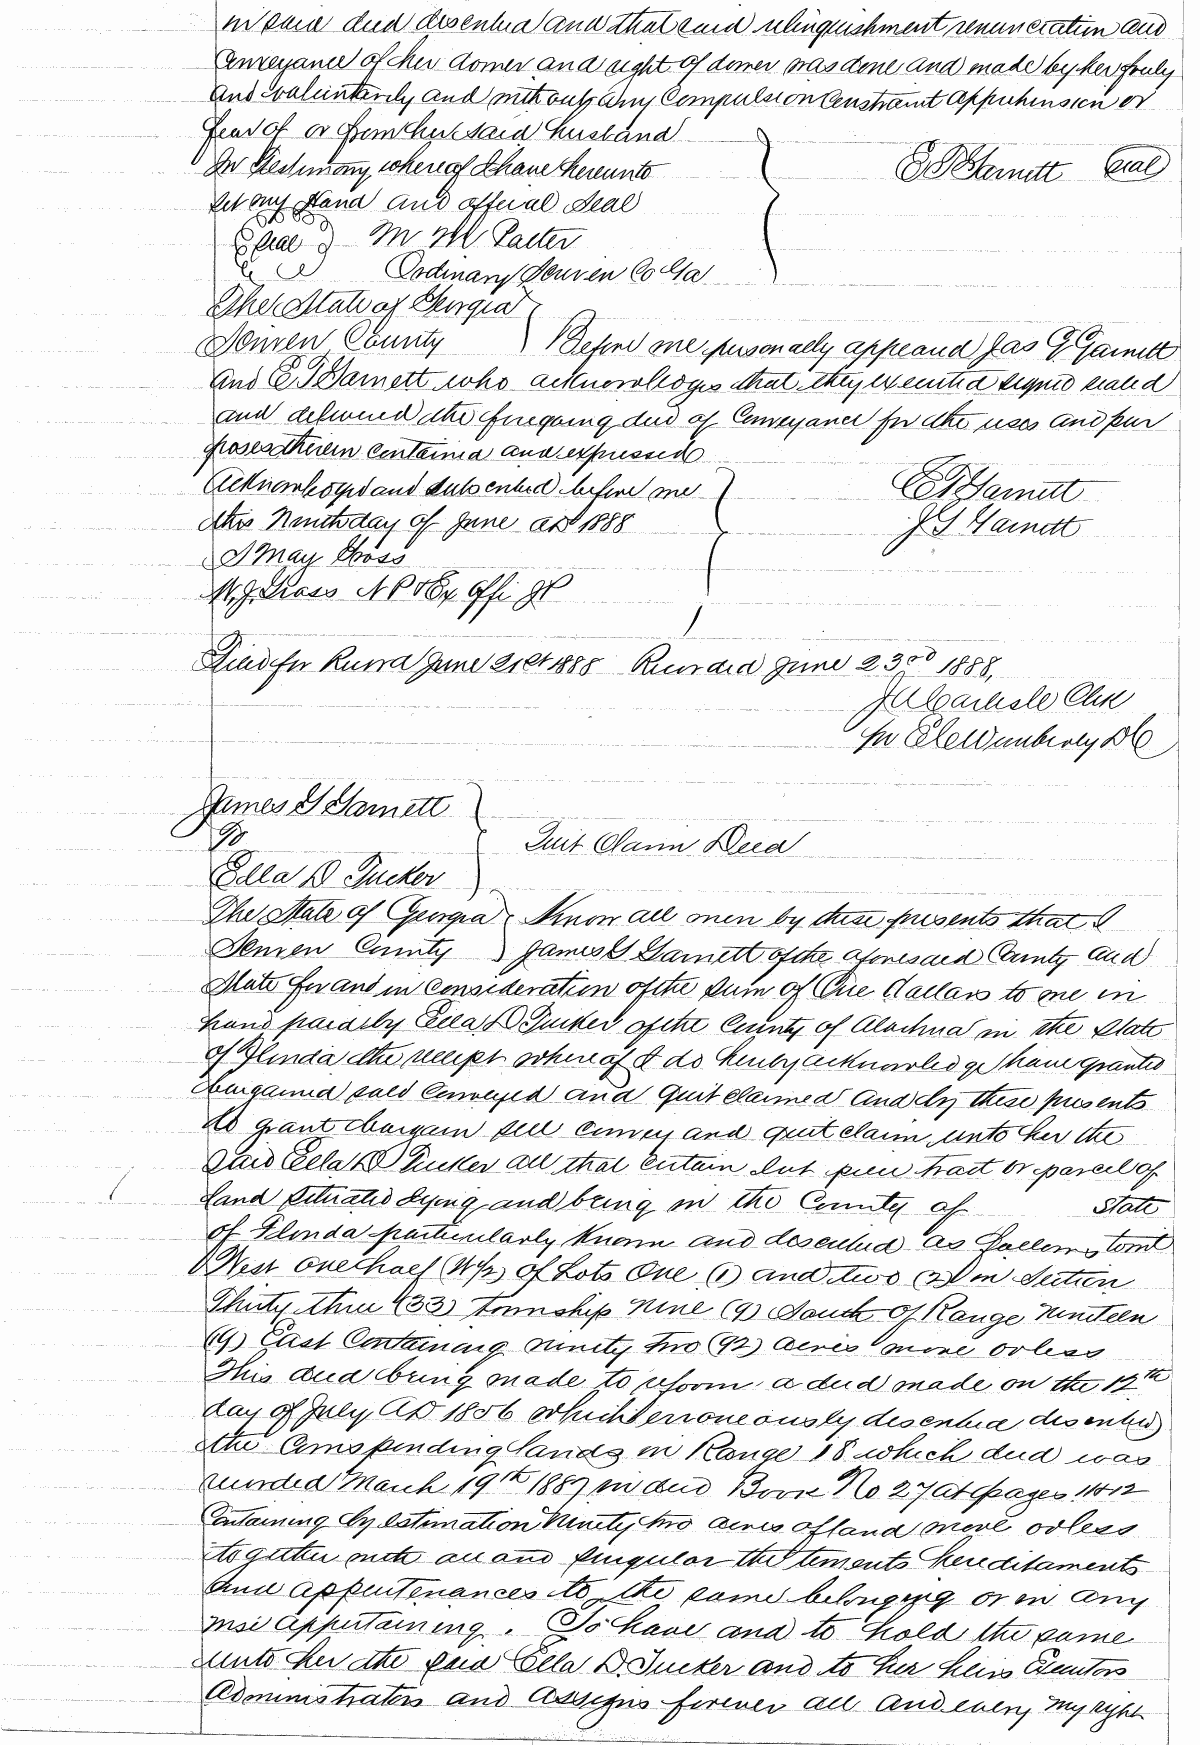 in said deed described and that said relinquishment renunciation and
Conveyance of her dower and right of dower was done and made by her freely
and voluntarily and without any Compulsion Constraint Apprehension or
fear of or from her said husband
In Testimony whereof I have hereunto
E T Garnett Seal
set my Hand and official Seal
Seal M M Potter
Ordinary Scriven Co Ga
The State of Georgia
Scriven County Before me personally appeared Jas G Garnett
and E T Garnett who acknowledges that they executed signed sealed
and delivered the foregoing deed of Conveyance for the uses and pur
poses therein contained and expressed
Acknowledged and subscribed before me
E T Garnett
this Ninth day of June AD 1888
J G Garnett
May Gross
M. J. Gross N P & Ex Offi JP
Filed for Record June 21st 1888 Recorded June 23rd 1888,
J A Carlisle Clk
per Wimberly D C
James G Garnett
To
Quit Claim Deed
Ella D Tucker
The State of Georgia Know all men by these presents that I
Scriven County James G Garnett of the aforesaid County and
State for and in consideration of the sum of One dollars to me in
hand paid by Ella D Tucker of the County of Alachua in the State
of Florida the receipt whereof I do hereby acknowledge have granted
bargained sold Conveyed and quit claimed and by these presents
do grant bargain sell convey and quit claim unto her the
Said Ella D Tucker all that certain lot piece tract or parcel of
land situated lying and being in the County of State
of Florida particularly known and described as follows towit
West one half (W ½) of Lots One (1) and two (2) in Section
Thirty three (33) township nine (9) South of Range nineteen
(19) East Containing ninety two (92) acres more or less
This deed being made to reform a deed made on the 12th
day of July AD 1856 which erroneously described described
the Corresponding lands in Range 18 which deed was
recorded March 19th 1887 in deed Book No 27 at pages 11&12
Containing by estimation Ninety two acres of land more or less
together with all and singular the tements hereditaments
and appurtenances to the same belonging or in any
wise appertaining. To have and to hold the same
unto her the said Ella D. Tucker and to her heirs Executors
Administrators and Assigns forever all and every my right